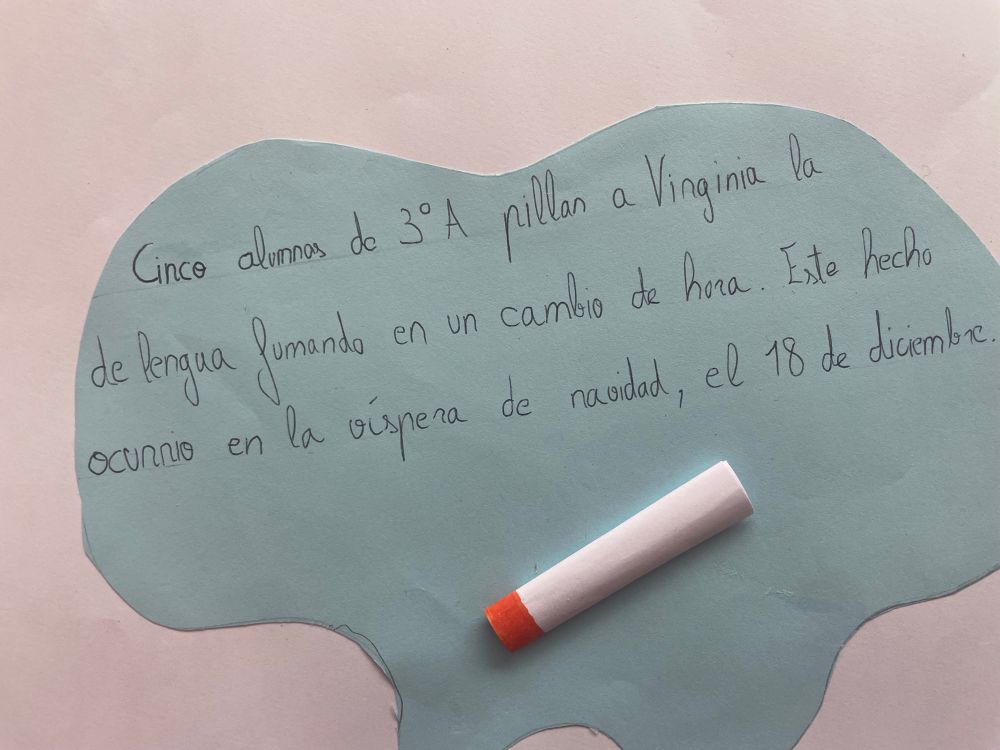 Cinco alumnas de 3º A pillan a Virginia la
de lengua fumando en un cambio de hora. Este hecho
ocurrio en la víspera de navidad, el 18 de diciembre.